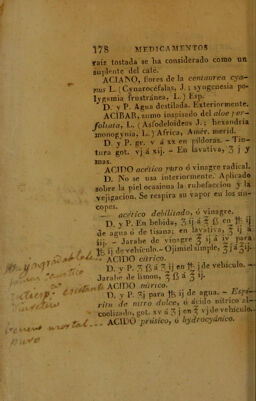 178 MEDICAMENTOS
raiz tostada se ha considerado como un
suplente del café.
ACIANO, flores de la centaurea cya-
nus L. (Cynarocéfalas, J. ; syngenesia po-
lygamia frustránea, L. ) Esp.
D. y P. Agua destilada. Exteriormente.
ACIBAR, sumo inspisado del aloe per-
foliata, L. (Asfodeloideas J.; hexandria
monogynia, L.) Africa, Amér. merid.
D. y P. gr. v á xx en píldoras. - Tin-
tura got. vj á xij. - En lavativa, ʒ j y
mas.
ACIDO acético puro ó vinagre radical.
D. No se usa interiormente. Aplicado
sobre la piel ocasiona la rubefaccion y la
vejigacion. Se respira su vapor en los sín-
copes.
— acético debilitado, ó vinagre.
D. y P. En bebida, ʒ ij á ℥ ß en ℔ ij
de agua ó de tisana; en lavativa, ℥ ij á
iij. - Jarabe de vinagre ℥ ij á iv para
℔ ij de vehículo. - Ojimiel simple, ℥ j á ℥ ij.
ACIDO cítrico.
D. y P. ʒ ß á ʒ ij en ℔ j de vehículo. -
Jarabe de limon, ℥ ß á ℥ ij.
ACIDO nítrico.
D. y P. ʒj para ℔ ij de agua. - Espí-
ritu de nitro dulce, ó ácido nítrico al-
coolizado, got. xv á ʒ j en ℥ vj de vehículo.
ACIDO prúsico, ó hydrocyánico.